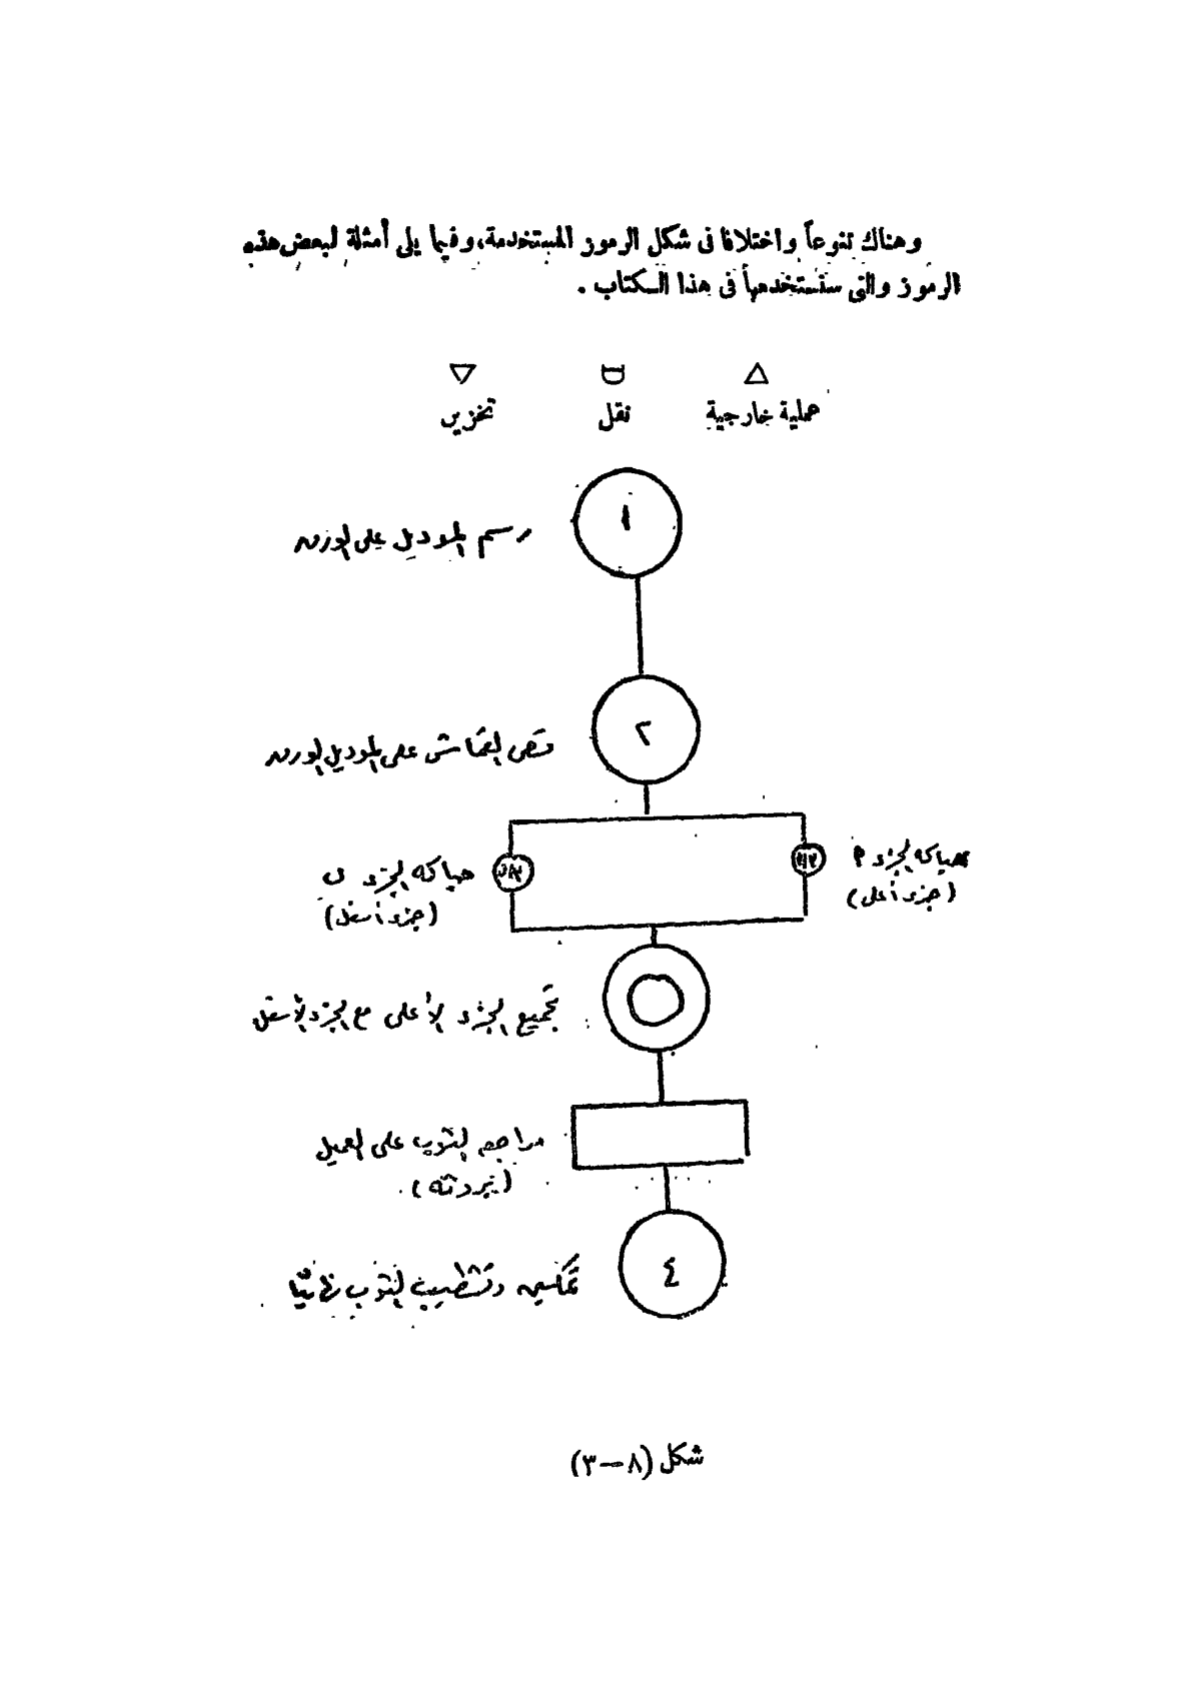 وهناك تنوعاً واختلافا فى شكل الرموز المستخدمة، وفيما يلى أمثلة لبعض هذه
الرموز والتى سنستخدمها فى هذا الكتاب .
عملية خارجية نقل تخزين
١
رسم الموديل على الورق
٢
قص القماش على الموديل الورق
حياكه الجزء أ
(جزء أعلى)
حياكه الجزء ب
(جزء أسفل)
تجميع الجزء الأعلى مع الجزء الأسفل
مراجعه الثوب على العميل
(بردته)
٤
تكميله وتشطيب الثوب نهائيًا
شكل (٨-٣)